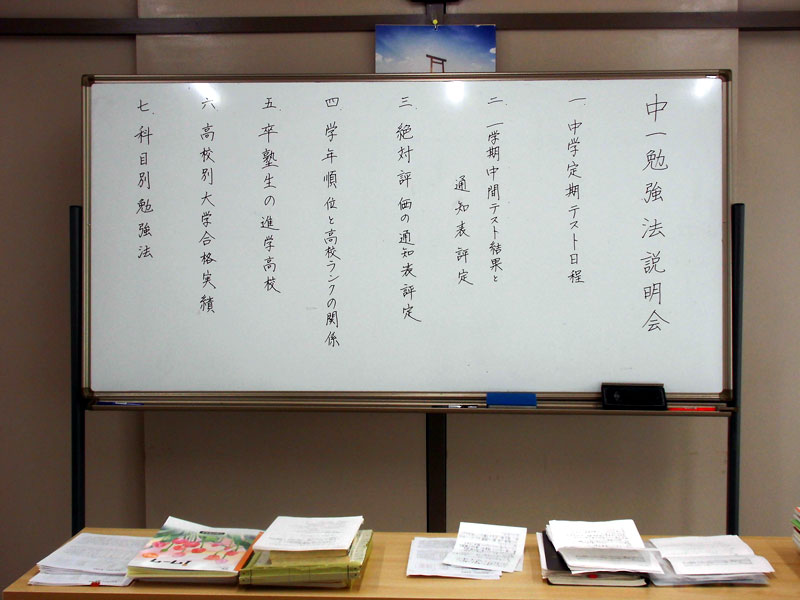 中一勉強法説明会
一、中学定期テスト日程
二、一学期中間テスト結果と
通知表評定
三、絶対評価の通知表評定
四、学年順位と高校ランクの関係
五、卒塾生の進学高校
六、高校別大学合格実績
七、科目別勉強法